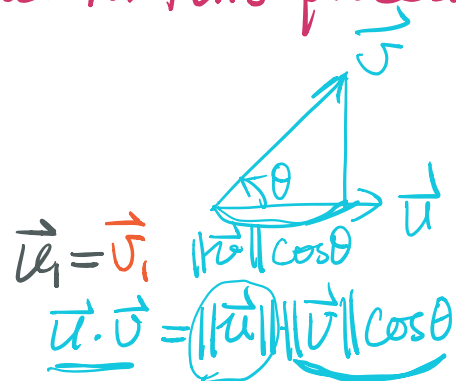 v⃗
θ
u⃗
u⃗₁ = v⃗₁
‖v⃗‖ cosθ
u⃗ · v⃗ = ‖u⃗‖ ‖v⃗‖ cosθ